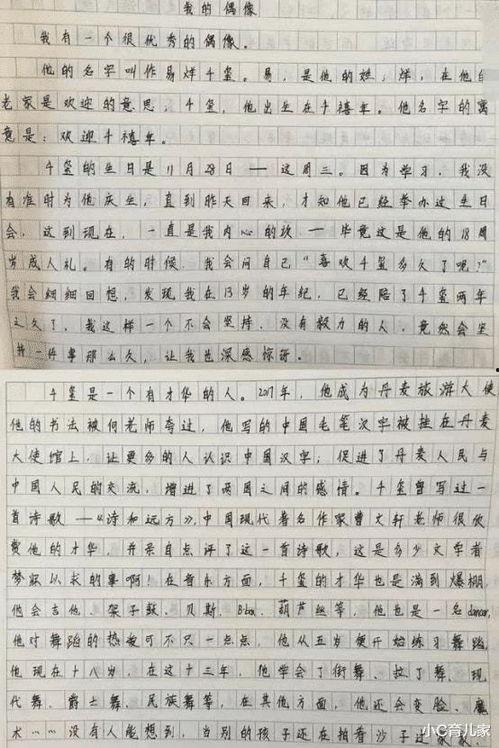 我的偶像
我有一个很优秀的偶像。
他的名字叫作易烊千玺。易,是他的姓;烊,在他的
老家是欢迎的意思;千玺,他出生在千禧年。他名字的寓
意是:欢迎千禧年。
千玺的生日是11月28日——这周三。因为学习,我没
有准时为他庆生,直到昨天回来,才知他已经举办过生日
会,这到现在,一直是我内心的坎——毕竟这是他的18周
岁成人礼。有的时候,我会问自己“喜欢千玺多久了呢?”
我会细细回想,发现我在13岁的年纪,已经陪了千玺两年
之久了,我这样一个不会坚持、没有毅力的人,竟然会坚
持一件事那么久,让我也深感惊讶。
千玺是一个有才华的人。2017年,他成为丹麦旅游大使
他的书法被何老师夸过,他写的中国毛笔汉字被挂在丹麦
大使馆上,让更多的人认识中国汉字;促进了丹麦人民与
中国人民的交流,增进了两国之间的感情。千玺曾写过一
首诗歌——《诗和远方》,中国现代著名作家曹文轩老师很欣
赏他的才华,并亲自点评了这一首诗歌,这是多少文学者
梦寐以求的事啊!在音乐方面,千玺的才华也是满到爆棚,
他会吉他、架子鼓、贝斯、B-box、葫芦丝等,他也是一名dancer,
他对舞蹈的热爱可不只一点点,他从五岁便开始练习舞蹈,
他现在十八岁,在这十三年,他学会了街舞、拉丁舞、现
代舞、爵士舞、民族舞等,在其他方面,他还会变脸、魔
术……没有人能想到,当别的孩子还在抱着沙子过家家
小C育儿家